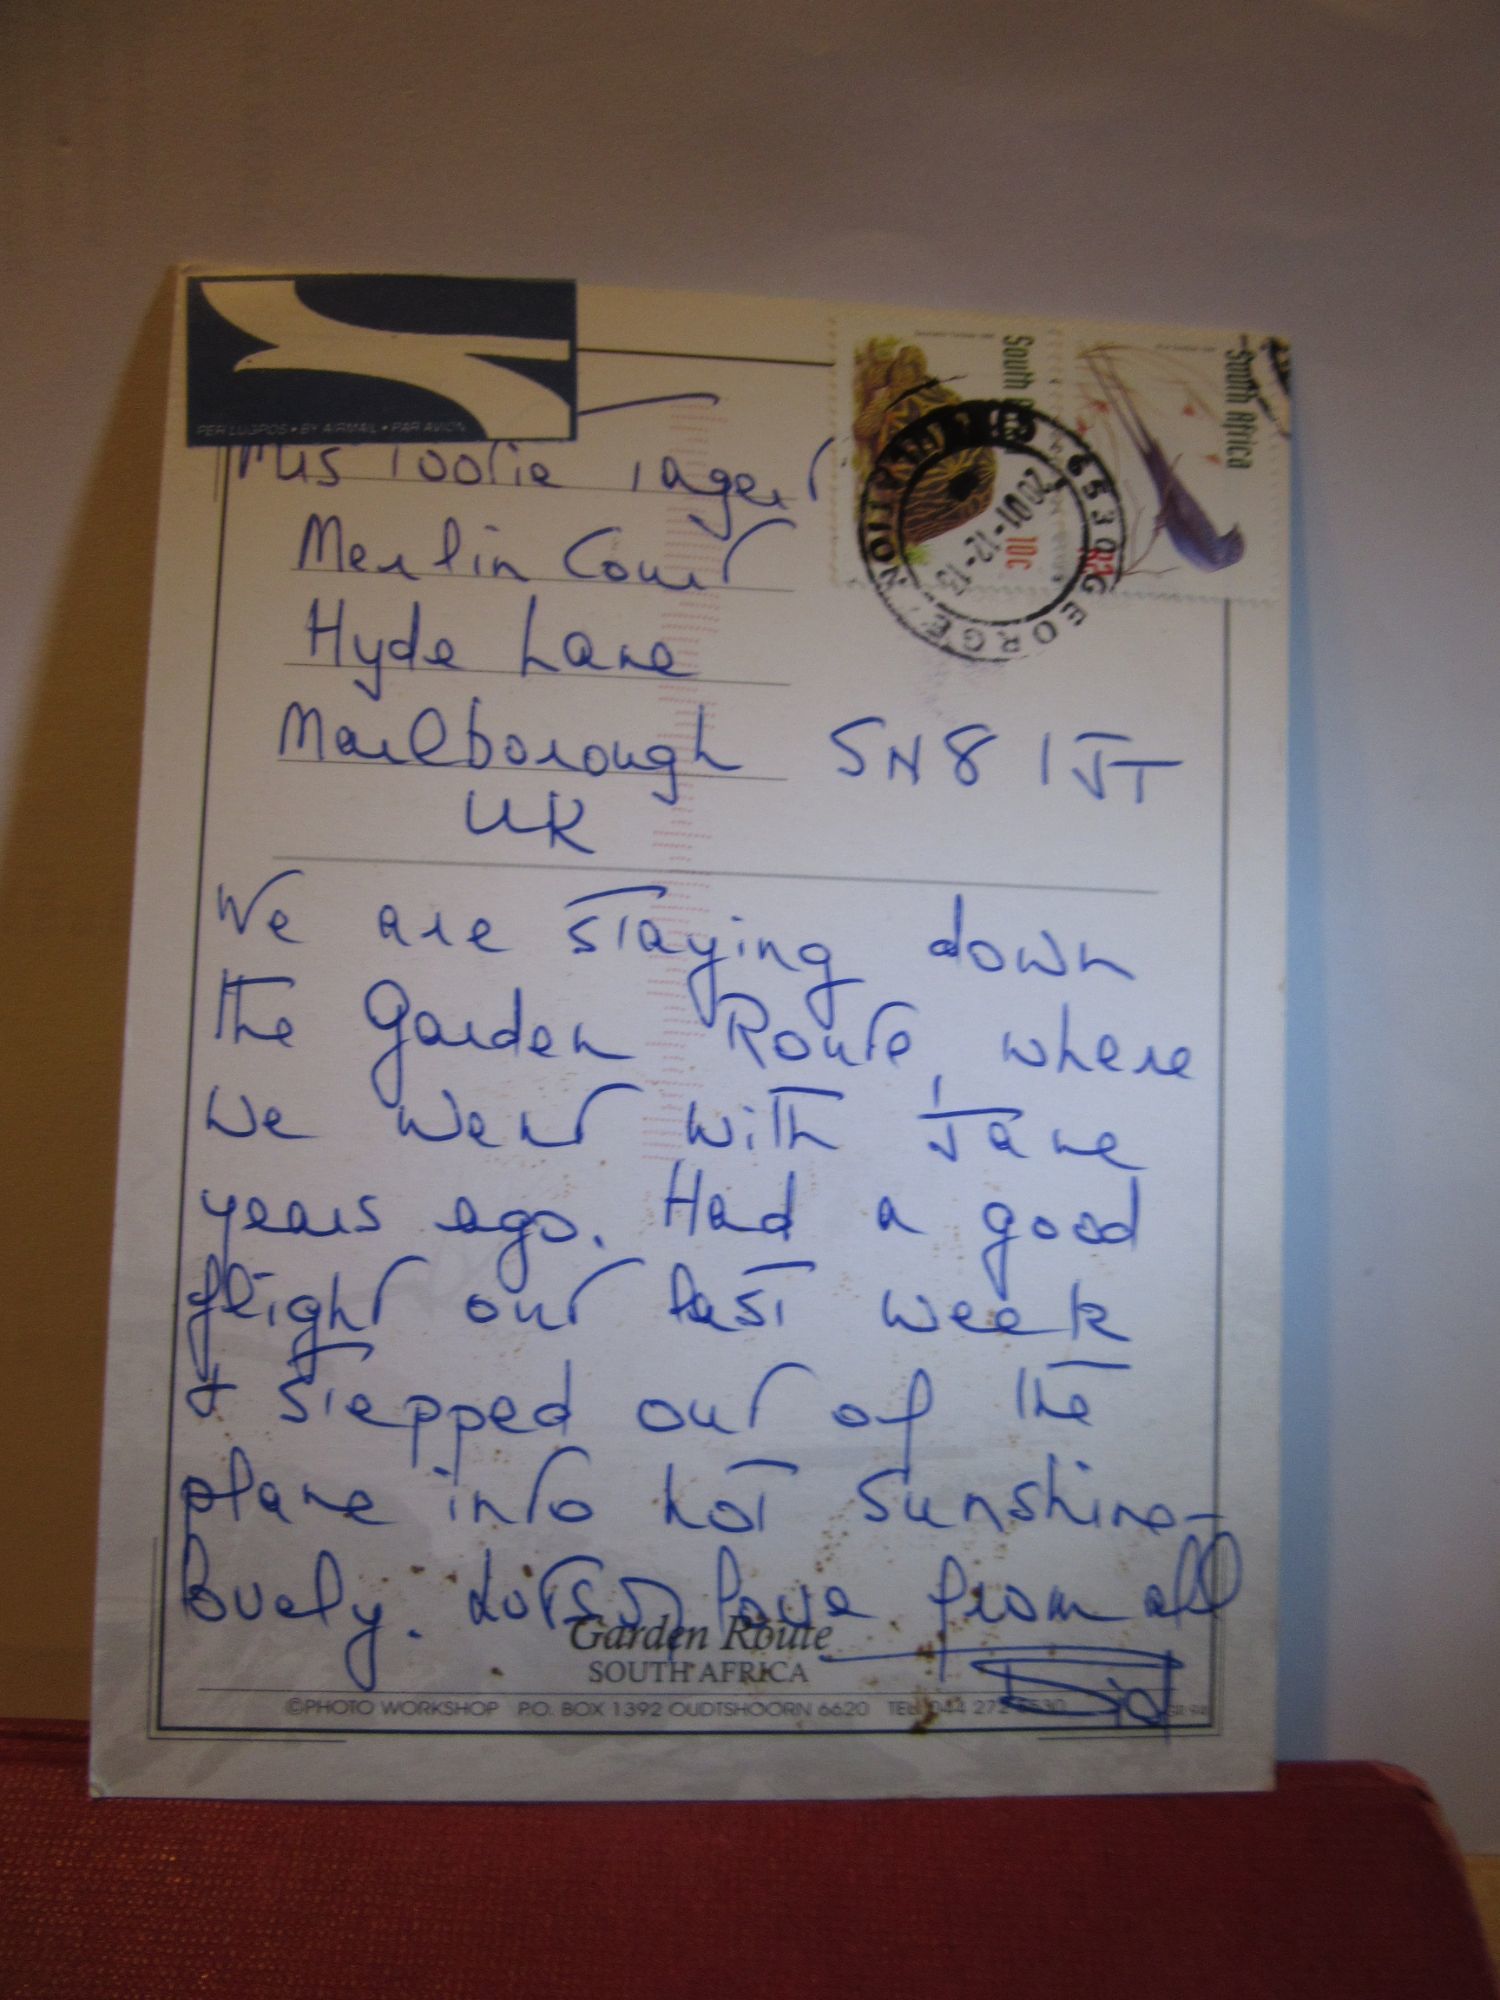 PER LUGPOS • BY AIRMAIL • PAR AVION
South Africa
South
10c
6530 GEORGE
2001-12-13
Mrs Tootie
Merlin Court
Hyde Lane
Marlborough SN8 1JT
UK
We are staying down
the Garden Route, where
we went with Jane
years ago. Had a good
flight out last week
& stepped out of the
plane into hot sunshine -
lovely. Lots of love from all
Sid
Garden Route
SOUTH AFRICA
©PHOTO WORKSHOP P.O. BOX 1392 OUDTSHOORN 6620 TEL: 044 272